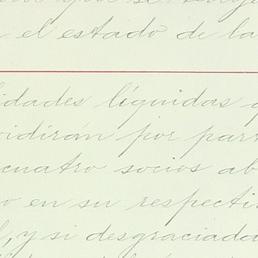 n el estado de la
idades líquidas q
vidirán por part
cuatro socios ab
o en su respecti
l, y si desgraciada